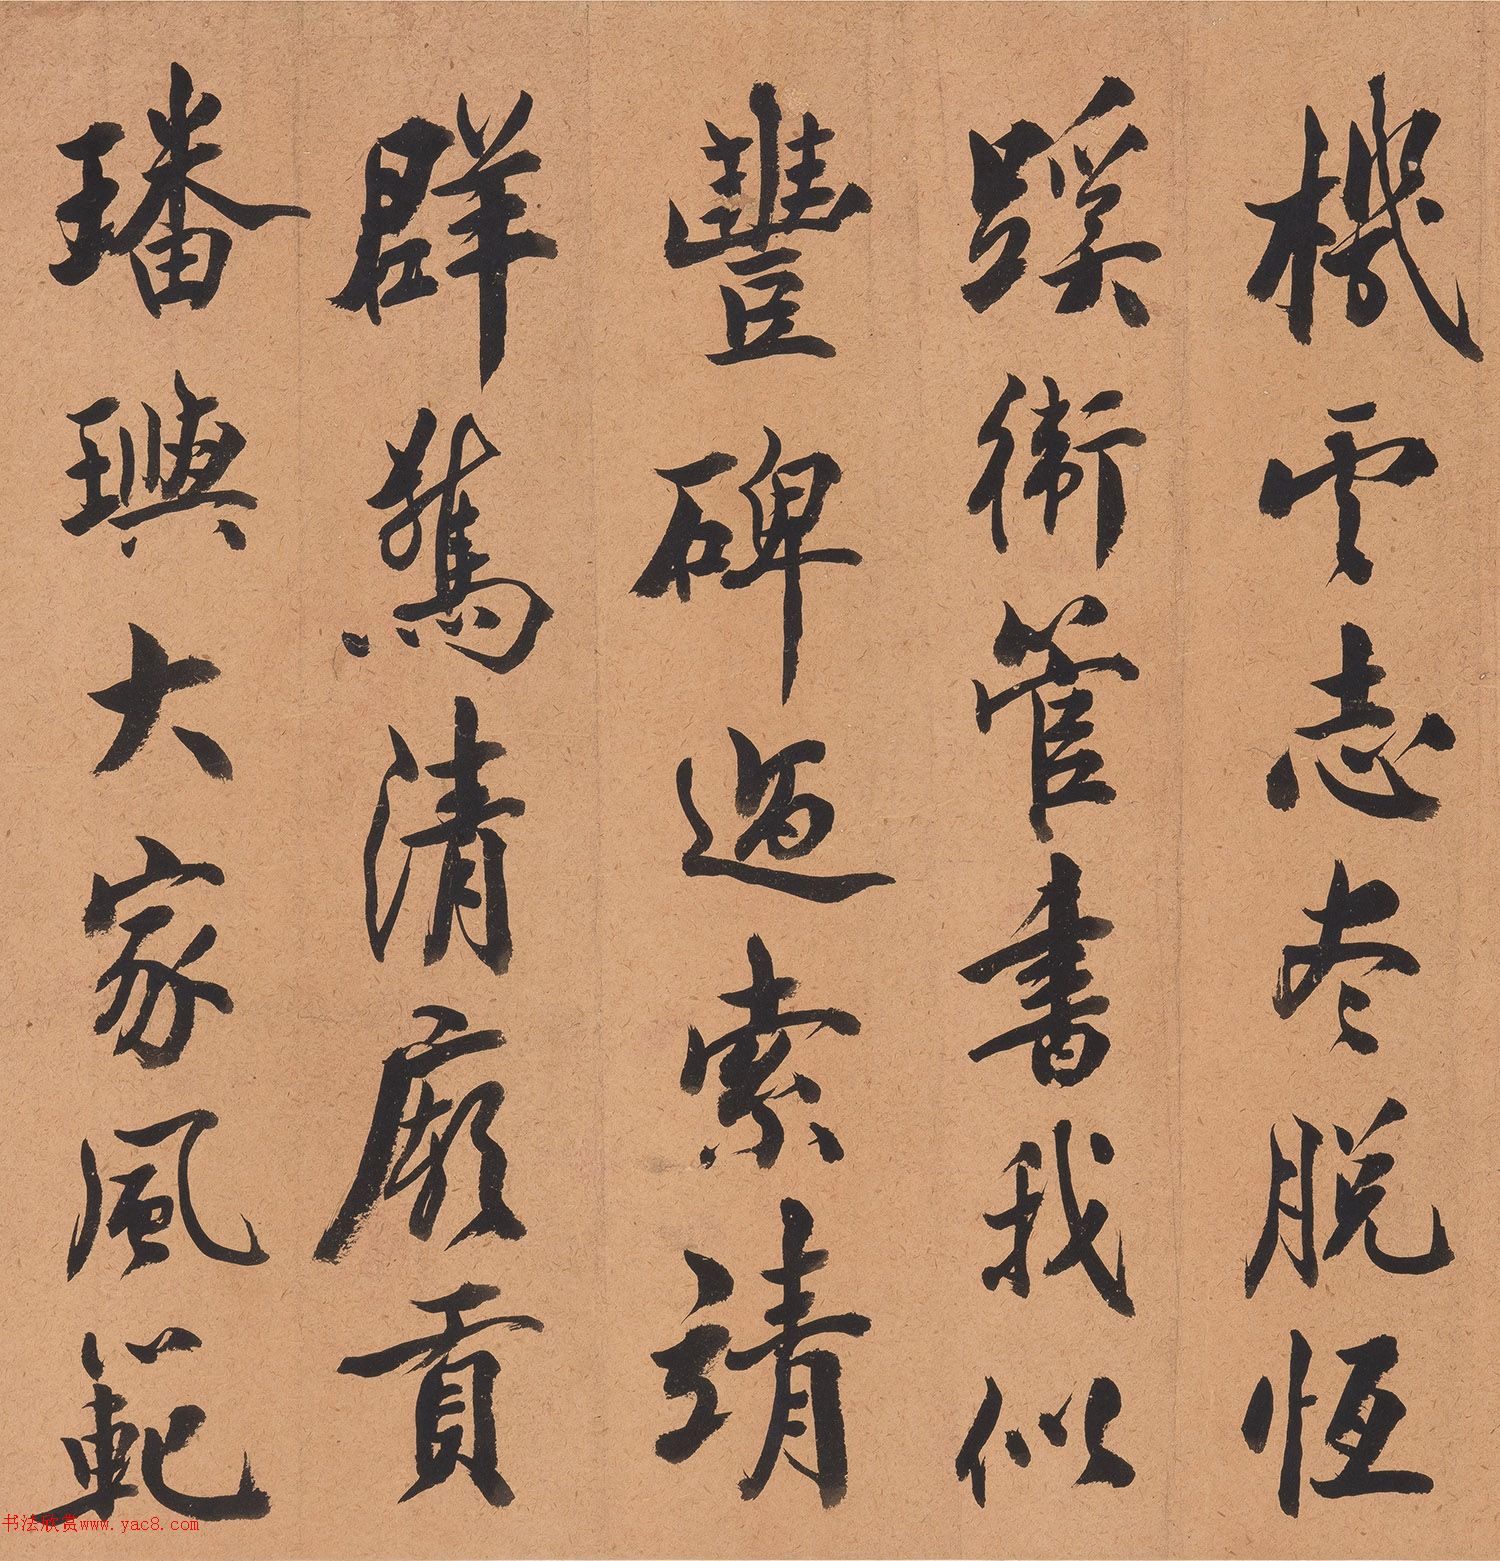 機雲志本脫恒
蹊術管書我似
豐碑過索靖
群驚清廟貢
璠璵大家風範
书法欣赏www.yac8.com